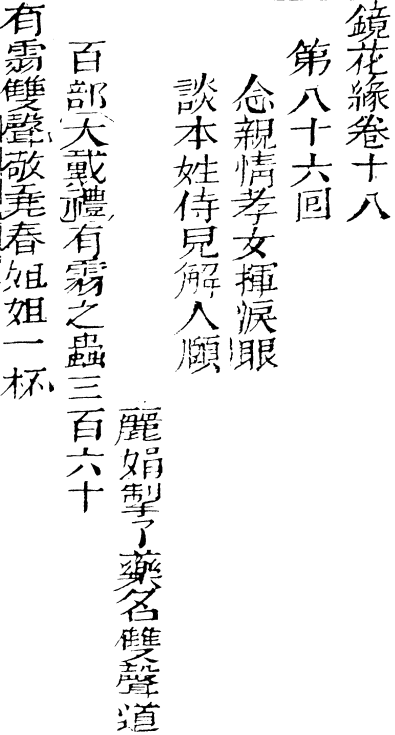 鏡花緣卷十八
第八十六回
念親情孝女揮淚眼
談本姓侍兒解人頤
麗娟掣了藥名雙聲道
百部大戴禮有羽之蟲三百六十
有羽雙聲敬堯春姐姐一杯